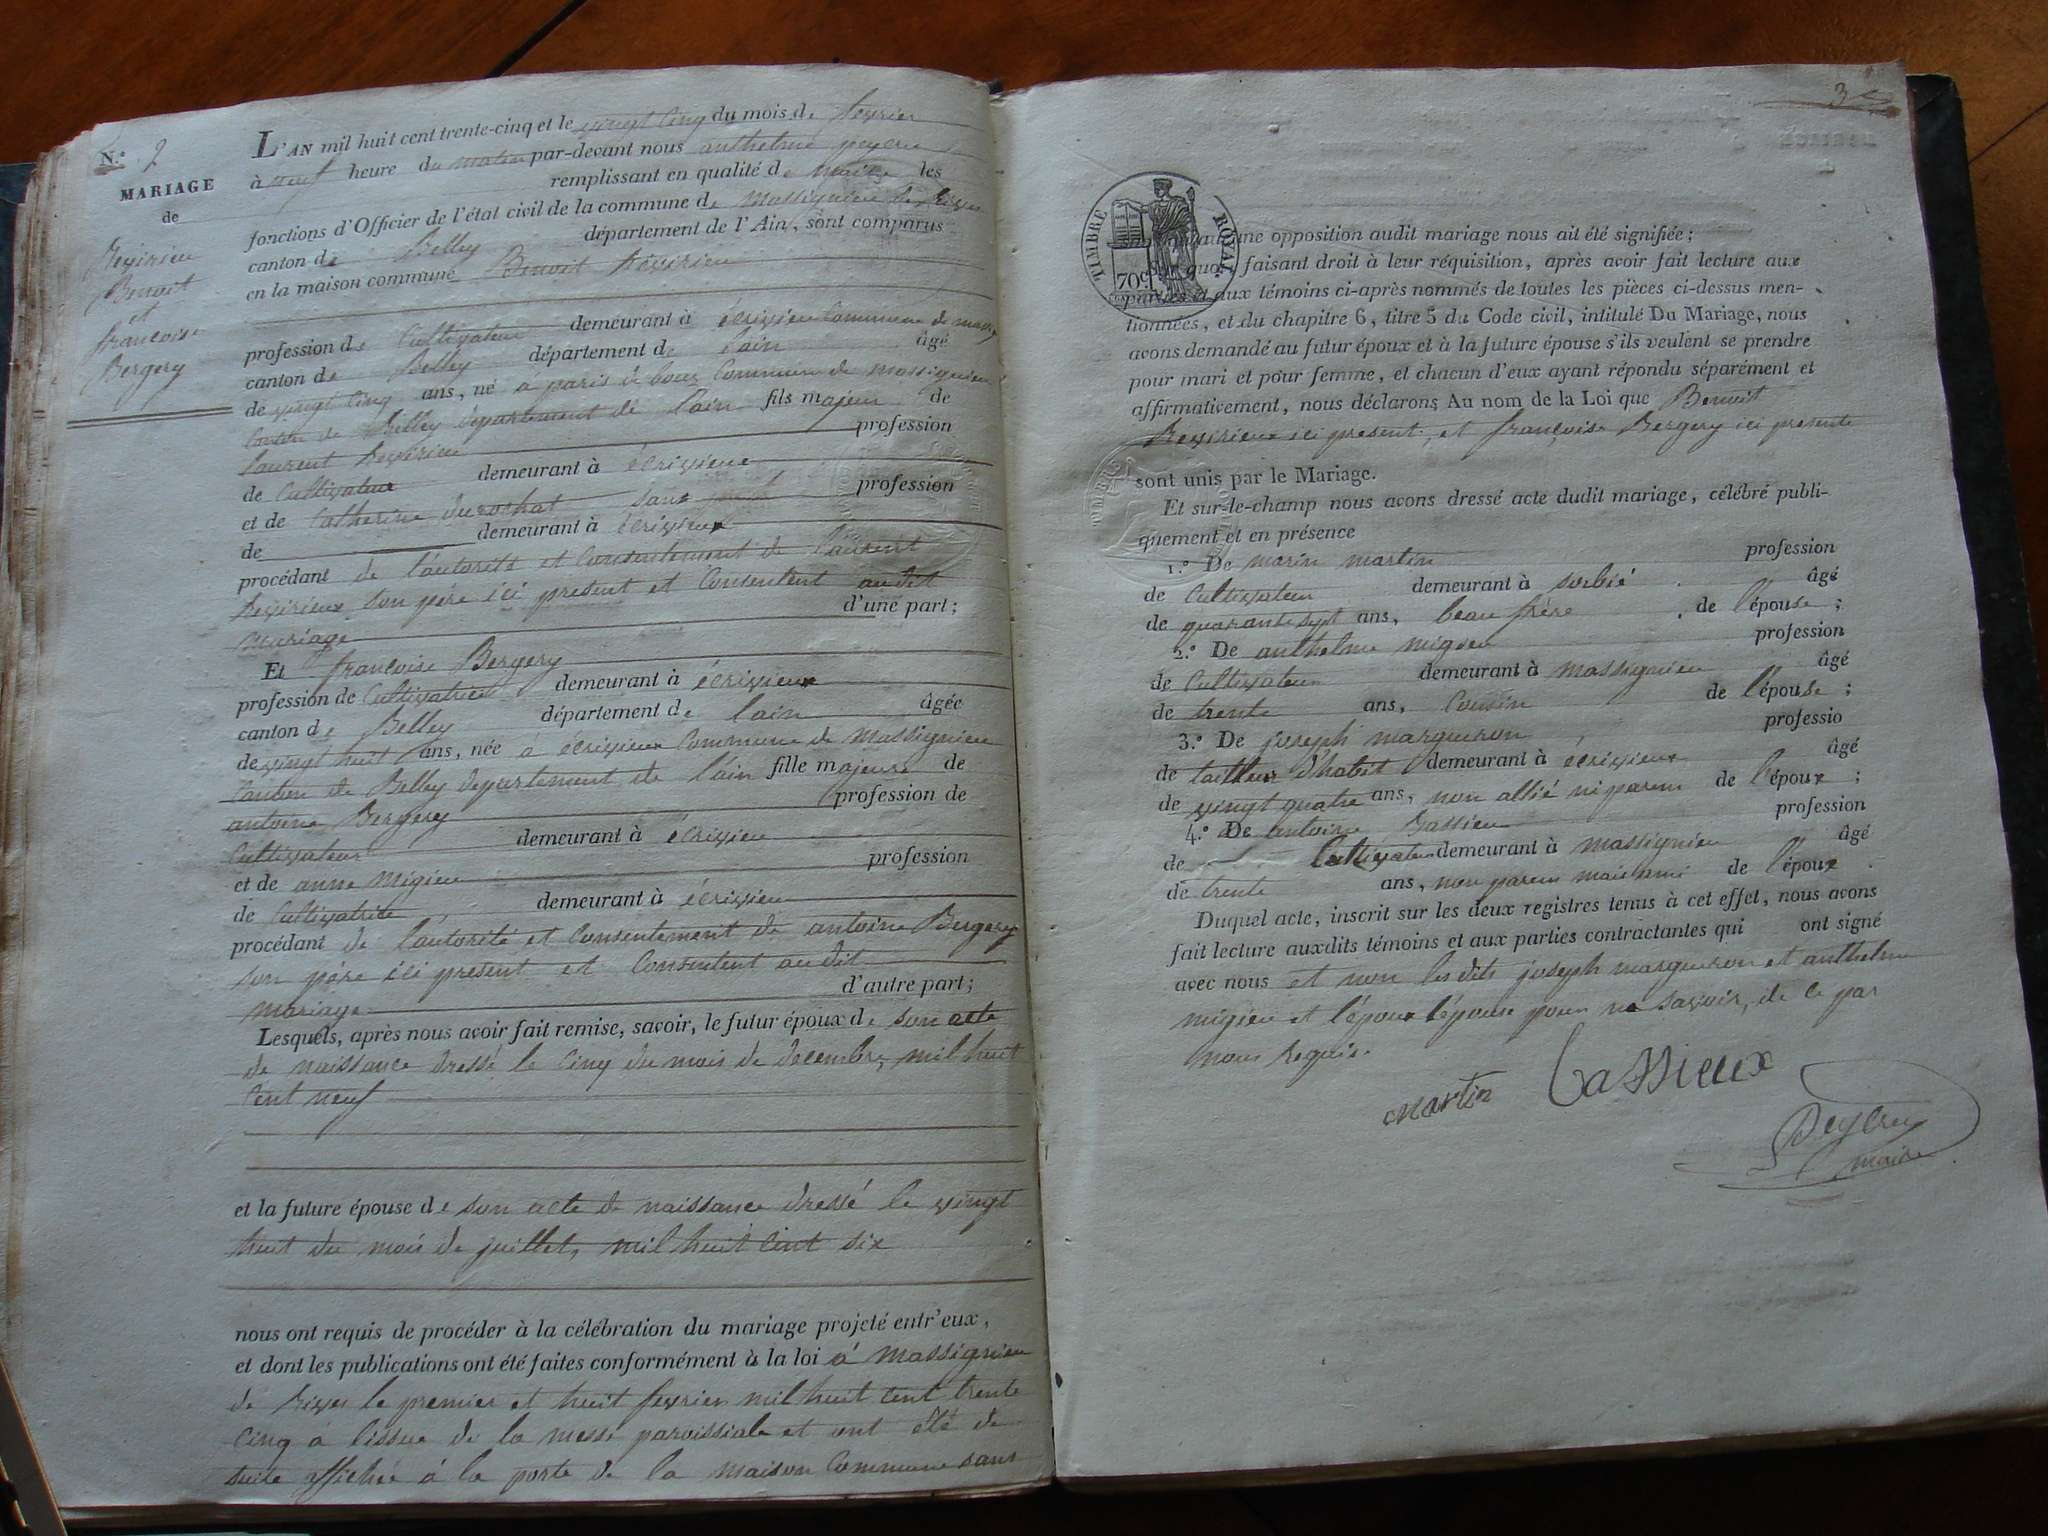 N.º 2
MARIAGE
de
Revirieu
Benoit
et
francoise
Bergery
L'AN mil huit cent trente-cinq et le vingt cinq du mois de fevrier
à neuf heure du matin par-devant nous anthelme peyerie
remplissant en qualité de maire les
fonctions d'Officier de l'état civil de la commune de Massignieu de Rives
canton de Belley département de l'Ain, sont comparus
en la maison commune Benoit Revirieu
profession de Cultivateur demeurant à écrivieu Commune de massi,
canton de Belley département de lain âgé
de vingt cinq ans, né à paris de bouz Commune de massignieu
Canton de Belley département de lain fils majeur de
Laurent Revirieu profession
de Cultivateur demeurant à écrivieux
et de Catherine durochat profession
de demeurant à écrivieux
procédant de l'autorité et Consentement de laurent
Revirieux son père ici present et Consentent audit
mariage d'une part;
Et francoise Bergery
profession de Cultivatrice demeurant à écrivieux
canton de Belley département de lain âgée
de vingt huit ans, née à écrivieux Commune de Massignieu
Canton de Belley département de lain fille majeure de
antoine Bergery profession de
Cultivateur demeurant à écrivieu
et de anne Migieu profession
de Cultivatrice, demeurant à écrivieu
procédant de l'autorité et Consentement de antoine Bergery
son père ici present et Consentent audit
mariage d'autre part;
Lesquels, après nous avoir fait remise, savoir, le futur époux de son acte
de naissance dressé le Cinq du mois de decembre, mil huit
Cent neuf
et la future épouse de son acte de naissance dressé le vingt
huit du mois de juillet, mil huit Cent six
nous ont requis de procéder à la célébration du mariage projeté entr'eux,
et dont les publications ont été faites conformément à la loi à massignieu
de Rives le premier et huit fevrier mil huit Cent trente
Cinq a lissue de la messe paroissiale et ont été de
suite affichée à la porte de la maison Commune sans
3
TIMBRE ROYAL
70
une opposition audit mariage nous ait été signifiée;
quoi faisant droit à leur réquisition, après avoir fait lecture aux
parties et aux témoins ci-après nommés de toutes les pièces ci-dessus men-
tionnées, et du chapitre 6, titre 5 du Code civil, intitulé Du Mariage, nous
avons demandé au futur époux et à la future épouse s'ils veulent se prendre
pour mari et pour femme, et chacun d'eux ayant répondu séparément et
affirmativement, nous déclarons Au nom de la Loi que Benoit
Revirieux ici present, et françoise Bergery ici presente
sont unis par le Mariage.
Et sur-le-champ nous avons dressé acte dudit mariage, célébré publi-
quement et en présence
1.º De marin martin profession
de Cultivateur demeurant à sorbié âgé
de quarante sept ans, beau frère de l'épouse;
2.º De anthelme migieu profession
de Cultivateur demeurant à massignieu âgé
de trente ans, Cousin de l'épouse;
3.º De joseph marqueron professio
de tailleur d'habit demeurant à écrivieux âgé
de vingt quatre ans, non allié ni parens de l'époux;
4.º De antoine profession
de Cultivateur demeurant à massignieu âgé
de trente ans, non parens mais ami de l'époux.
Duquel acte, inscrit sur les deux registres tenus à cet effet, nous avons
fait lecture auxdits témoins et aux parties contractantes qui ont signé
avec nous et non les dits joseph marqueron et anthelme
migieu et l'époux l'épouse pour ne savoir, de ce par
nous Requis.
Martin
Maire